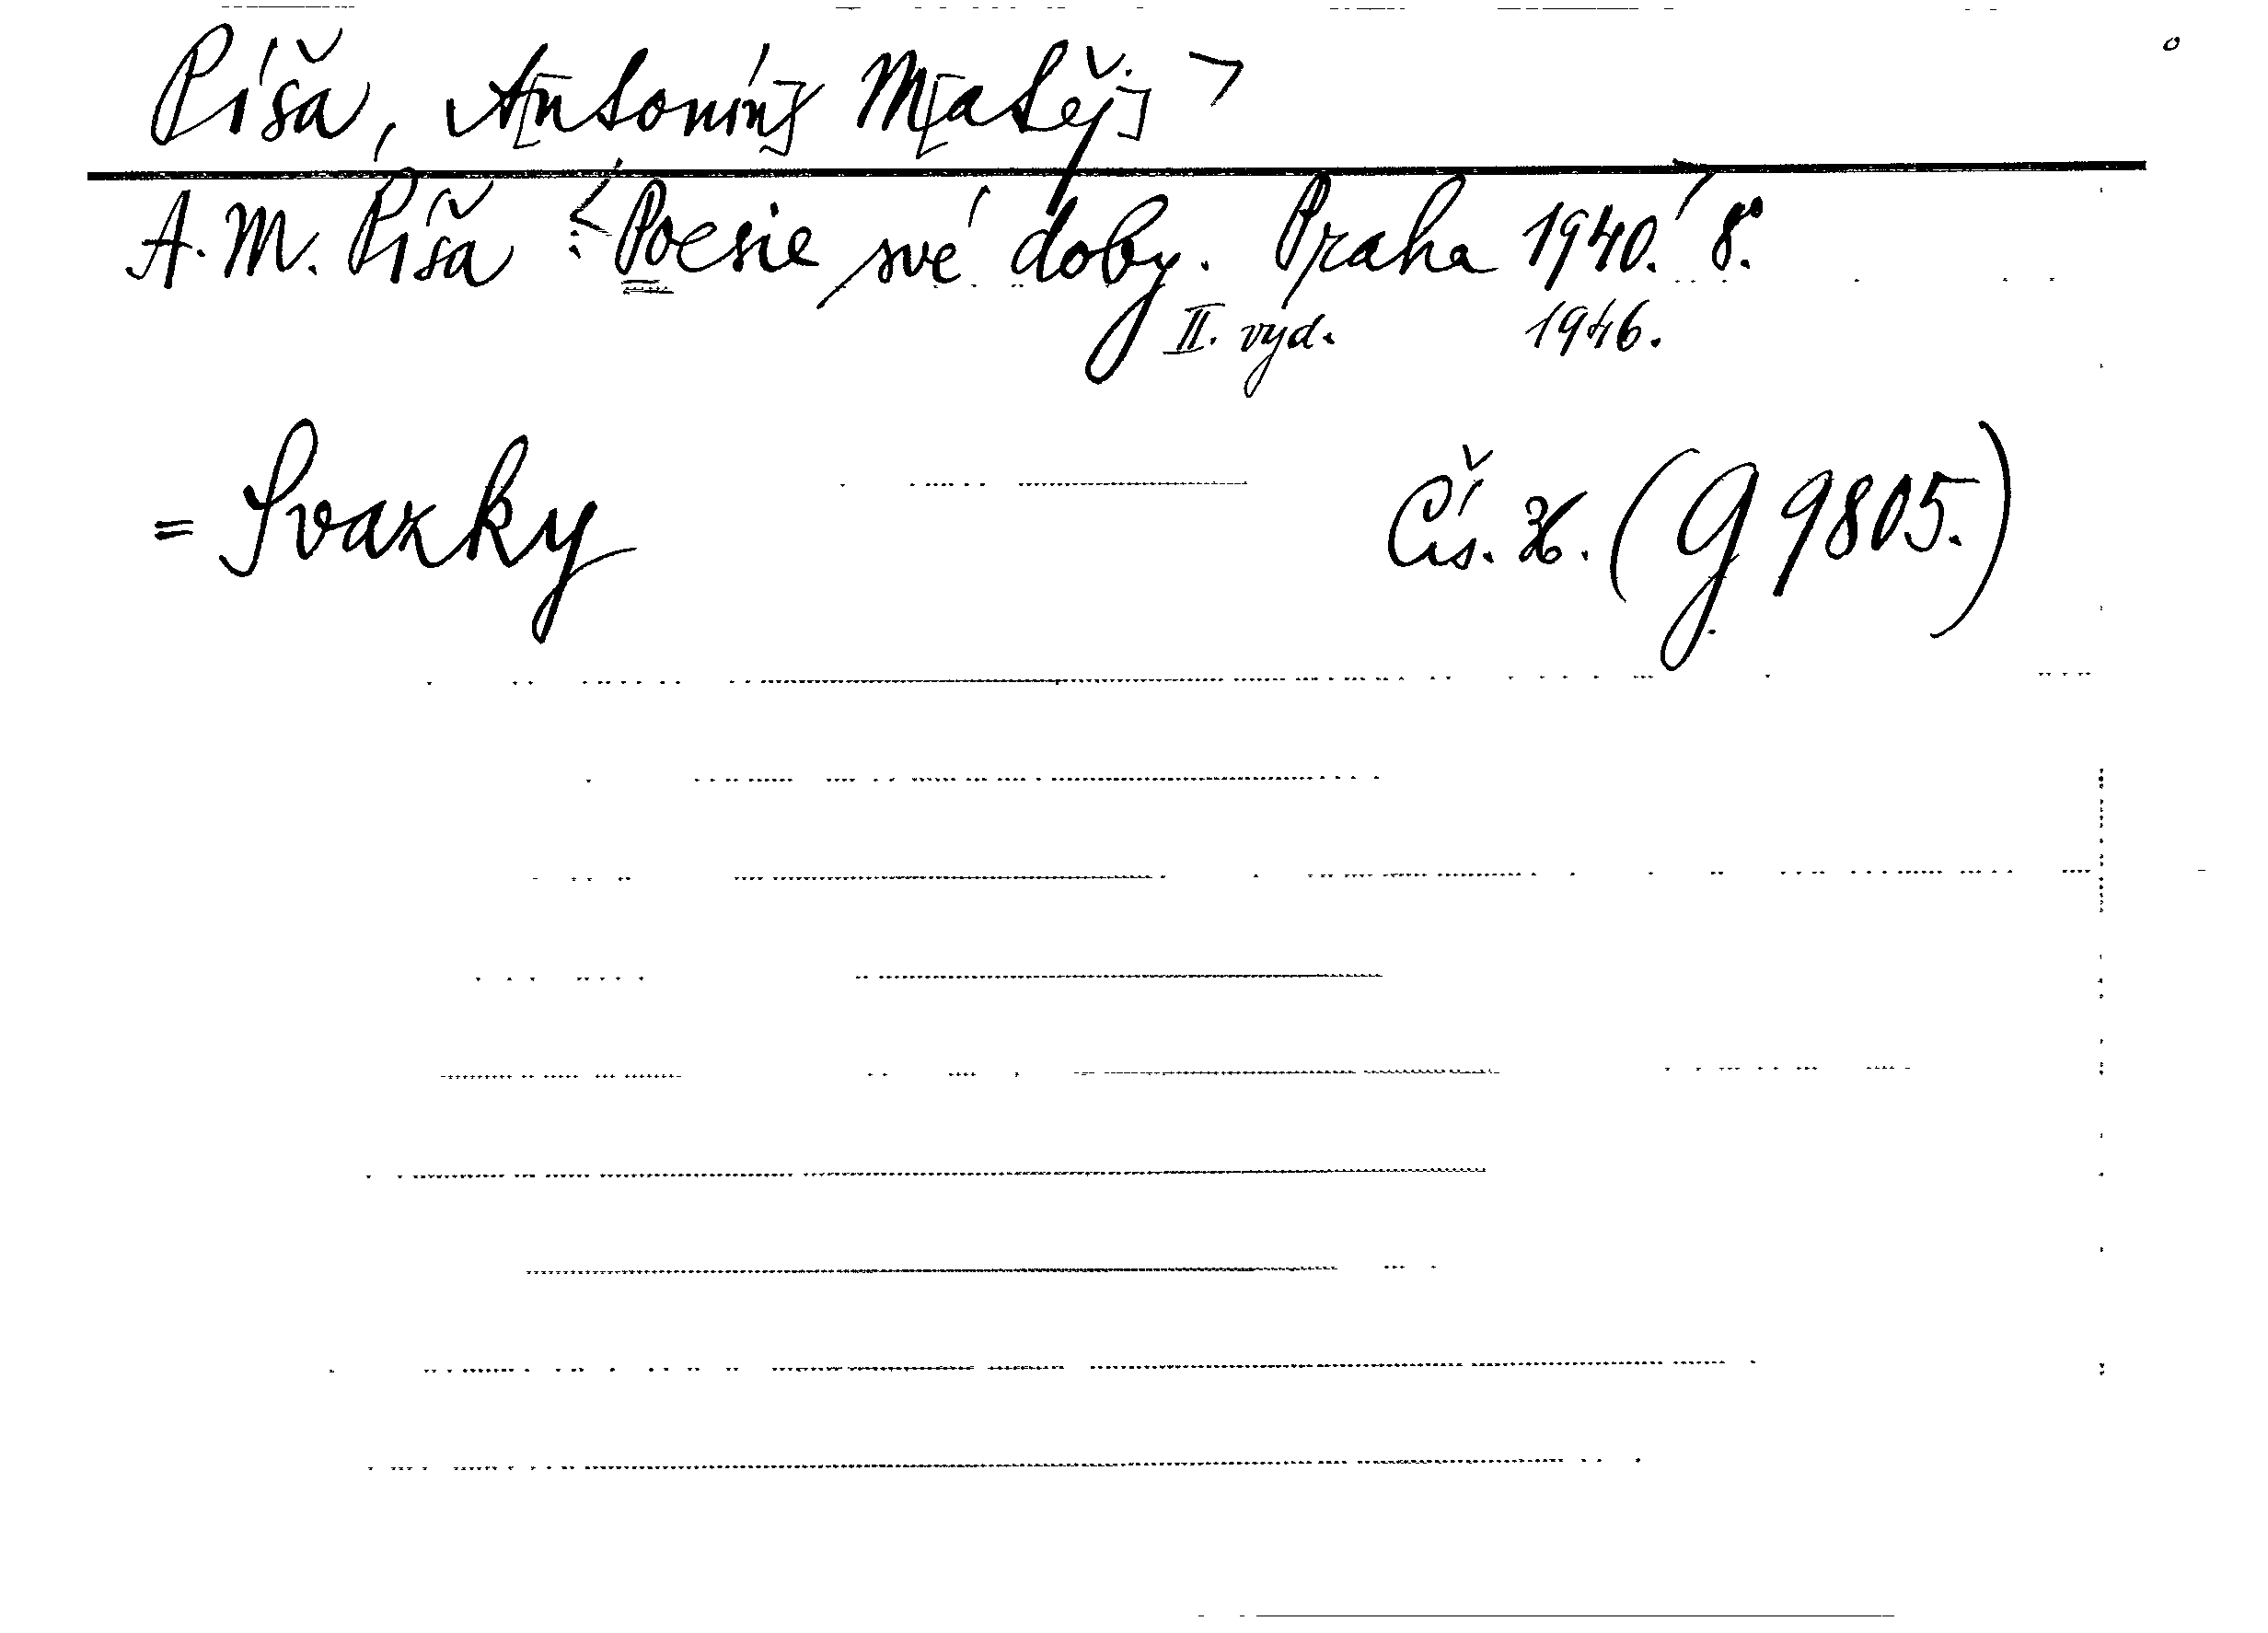 Píša, A[ntonín] M[atěj]
A. M. Píša : Poesie své doby. Praha 1940. 8°.
II. vyd. 1946.
= Svazky Čís. 36. (G 9805.)